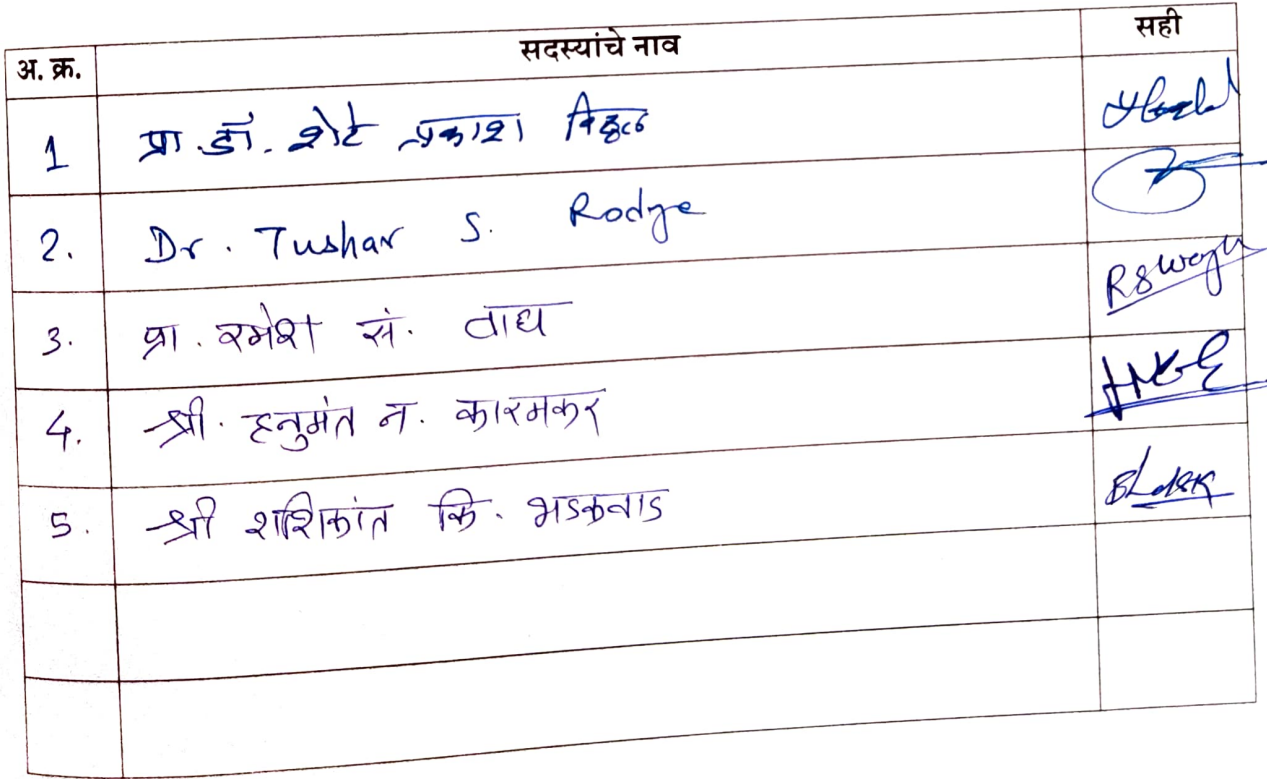 अ. क्र. सदस्यांचे नाव सही
1 प्रा. डॉ. शेटे प्रकाश विठ्ठल
2. Dr. Tushar S. Rodge
3. प्रा. रमेश सं. वाघ RSWagh
4. श्री. हनुमंत न. कारमकर
5. श्री शशिकांत कि. भडकवाड